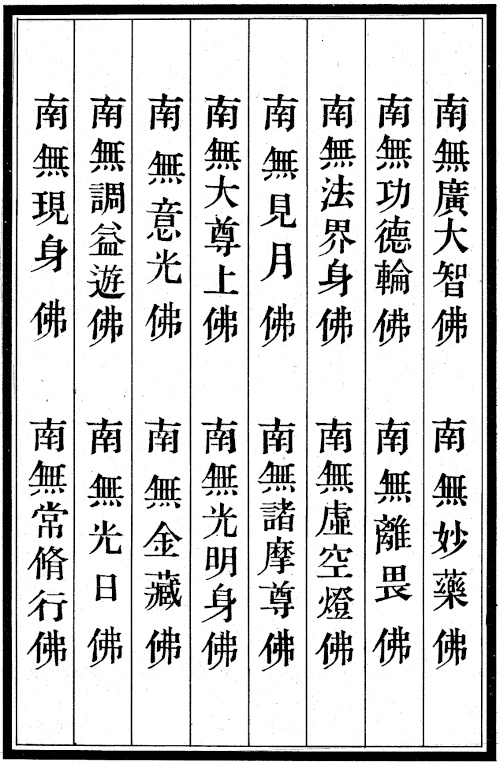 南無廣大智佛　南無妙藥佛
南無功德輪佛　南無離畏佛
南無法界身佛　南無虛空燈佛
南無見月佛　南無諸摩尊佛
南無大尊上佛　南無光明身佛
南無意光佛　南無金藏佛
南無調益遊佛　南無光日佛
南無現身佛　南無常脩行佛